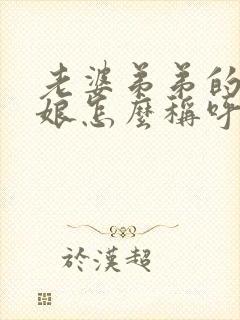 老婆弟弟的
娘怎麼稱呼
於漢超